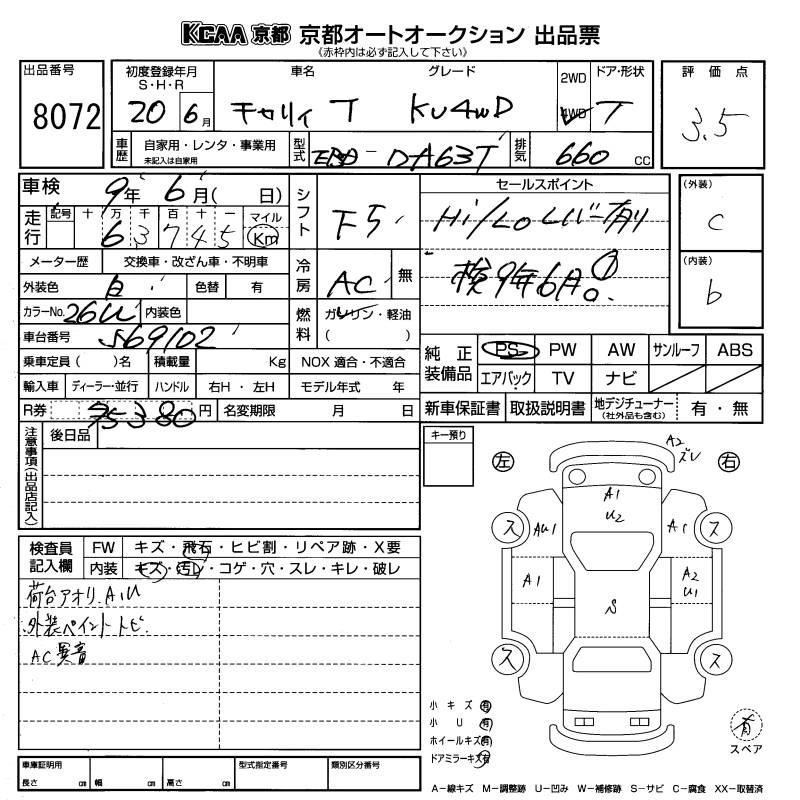 KCAA 京都 京都オートオークション 出品票
《赤枠内は必ず記入して下さい》
出品番号 8072
初度登録年月 S・H・R 20 6月
車名 グレード キャリィ T KU4WD
2WD 4WD
ドア・形状 T
評価点 3.5
車歴 自家用・レンタ・事業用 未記入は自家用
型式 EBD-DA63T
排気 660 CC
車検 9年 6月( 日)
走行 記号 十 万 千 百 十 一 マイル Km
6 3 7 4 5
メーター歴 交換車・改ざん車・不明車
外装色 白 色替 有
カラーNo. 26U 内装色
車台番号 569102
乗車定員 ( )名 積載量 Kg
輸入車 ディーラー・並行 ハンドル 右H・左H
R券 75380 円 名変期限 月 日
シフト F5
冷房 AC 無
燃料 ガソリン・軽油 ( )
NOX 適合・不適合
モデル年式 年
セールスポイント
Hi/Loレバー有り
検9年6月!
(外装) C
(内装) b
純正装備品 PS PW AW サンルーフ ABS
エアバック TV ナビ
新車保証書 取扱説明書 地デジチューナー (社外品も含む) 有・無
注意事項(出品店記入) 後日品
キー預り
検査員記入欄 FW キズ・飛石・ヒビ割・リペア跡・X要
内装 キズ・汚レ・コゲ・穴・スレ・キレ・破レ
荷台アオリ.A1U
外装ペイントトビ.
AC異音
左 右
A2 ズレ
A1 U2
ス AU1 A1 ス
A1 A2 U1
S
ス ス
小キズ 有
小U 有
ホイールキズ 有
ドアミラーキズ 有
有 スペア
車庫証明用 長さ cm 幅 cm 高さ cm
型式指定番号 類別区分番号
A-線キズ M-調整跡 U-凹み W-補修跡 S-サビ C-腐食 XX-取替済